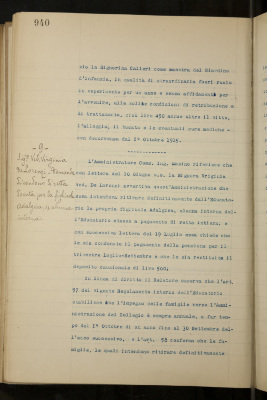 940
via la Signorina Galleri come maestra del Giardino
d'Infanzia, in qualità di straordinaria fuori ruolo
in esperimento per un anno e senza affidamento per
l'avvenire, alle solite condizioni di retribuzione e
di trattamento, cioè lire 450 annue oltre il vitto,
l'alloggio, il bucato e le eventuali cure mediche -
con decorrenza dal 1° Ottobre 1926.
- 9 -
L'Amministratore Comm. Ing. riferisce che
con lettera del 30 Giugno u.s. la Signora Brigida
Ved. De Lorenzi avvertiva quest'Amministrazione che
essa intendeva ritirare definitivamente dall'Educato-
rio la propria figliuola Adalgisa, alunna interna del-
l'Educatorio stesso a pagamento di retta intiera, e
con successiva lettera del 19 Luglio essa chiede che
le sia condonato il pagamento della pensione per il
trimestre Luglio-Settembre e che le sia restituito il
deposito cauzionale di lire 500.
In linea di diritto il Relatore osserva che l'art.
57 del vigente Regolamento interno dell'Educatorio
stabilisce che l'impegno delle famiglie verso l'Ammi-
nistrazione del Collegio è sempre annuale, e far tem-
po dal 1° Ottobre di un anno fino al 30 Settembre del-
l'anno successivo, e l'art. 58 conferma che le fa-
miglie, le quali intendono ritirare definitivamente